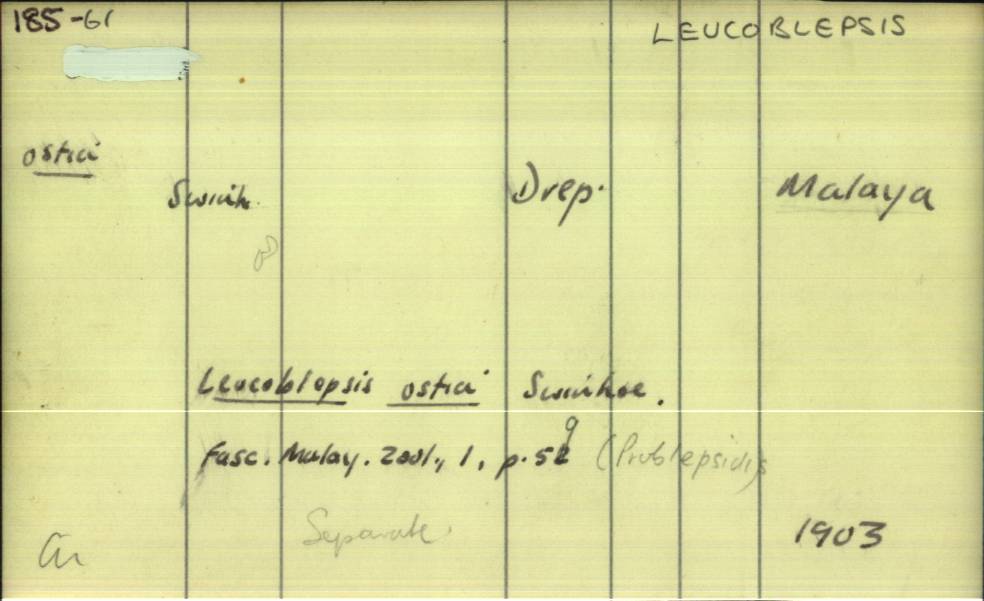 185-61
LEUCOBLEPSIS
ostia
Swinh.
Drep.
Malaya
Leucoblepsis ostia Swinhoe.
9
Fasc. Malay. Zool., 1, p. 52 (Problepsidis
Separate
1903